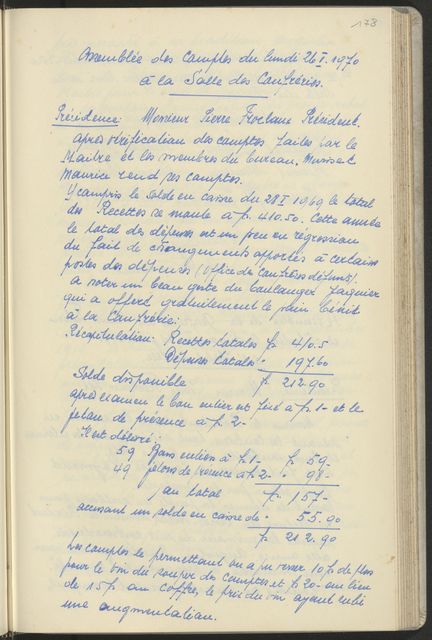 178
Assemblée des Comptes du lundi 26 I. 1970
à la Salle des Confréries.
Présidence: Monsieur Pierre Président.
après vérification des comptes faites par le
Maître et les membres du bureau, Musset
Maurice rend ses comptes.
Y compris le solde en caisse du 28 I 1969 le total
des Recettes se monte à fr. 410.50. Cette année
le total des dépenses est un peu en régression
du fait de changements apportés à certains
postes des dépenses (Office de Confrères défunts).
a noter un beau geste du boulanger Jaquier
qui a offert gratuitement le pain bénit
à la Confrérie:
Récapitulation: Recettes totales fr. 410.5
Dépenses totales " 197.60
Solde disponible fr. 212.90
après examen le bon entier est fixé à fr. 1- et le
jeton de présence à fr. 2-
Il est délivré:
59 Bons entiers à fr. 1- fr. 59-
49 jetons de présence à fr. 2- " 98-
au total fr. 157-
accusant un solde en caisse de " 55.90
fr. 212.90
Les comptes le permettant on a pu verser 10 fr. de plus
pour le vin du souper des Comptes et fr. 20- au lieu
de 15 fr. au coffre, le prix du vin ayant subi
une augmentation.